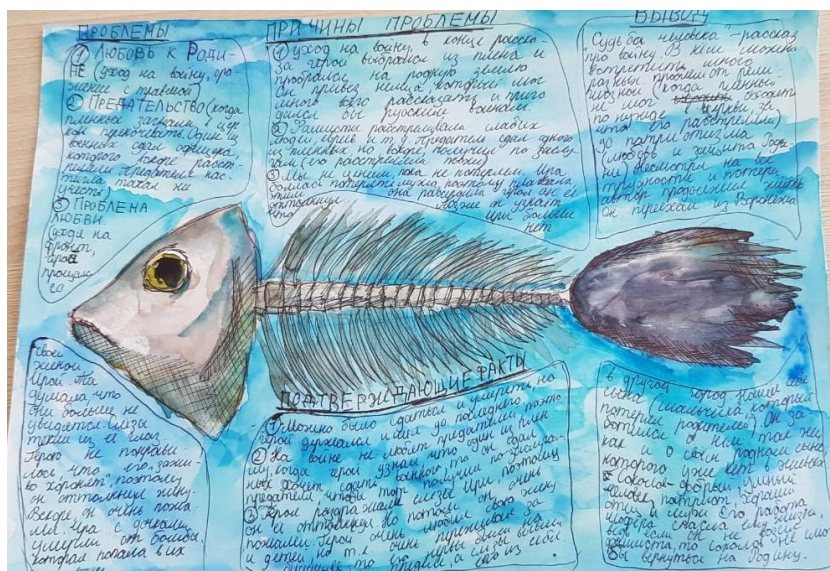 ПРОБЛЕМЫ
① ЛЮБОВЬ К РОДИ-
НЕ (уход на войну, сра-
жение с травмой)
② ПРЕДАТЕЛЬСТВО (когда
пленных загнали в цер-
ковь переночевать. Один из
военных сдал офицера
которого вскоре расст-
такая же
участь)
③ ПРОБЛЕМА
ЛЮБВИ
(уходя на
фронт,
герой
прощал-
ся
с своей
женой
Ирой. Та
думала, что
они больше не
увидятся слезы
текли из её глаз.
Герою не понрави-
лось, что его "зажи-
во хоронят", поэтому
он оттолкнул жену.
Вскоре, он очень пожа-
лел. Ира с дочками
умерли от бомбы,
которая попала в их
ПРИЧИНЫ ПРОБЛЕМЫ
① Уход на войну, в конце расска-
за герой выбрался из плена и
пробрался на родную землю
Он привёз немца, который мог
много чего рассказать и приго
дился бы русским воинам.
② Фашисты расстреливали слабых
людей, евреев и т.д. Предатель сдал одного
из пленных но вскоре получил по заслу-
гам (его расстреляли позже)
③ Мы не ценим, пока не потеряем. Ира
боялась потерять мужа, поэтому плакала
этим она разозлила и он её
оттолкнул. Позже он узнает
что Иры больше
нет
ВЫВОД
"Судьба человека" - рассказ
про войну. В нём можно
встретить много
разных проблем от рели-
гиозной (когда пленный
не мог сходить
по нужде в церкви за
что его расстреляли)
до патриотизма
(любовь и защита Роди-
ны) Несмотря на все
трудности и потери
автор продолжил жизнь
он переехал из Воронежа
в другой город. Нашёл себе
сына (мальчика, который
потерял родителей) Он за-
ботился о нём так же
как и о своём родном сыне
которого уже нет в живых
Соколов - добрый, умный
человек, патриот, хороший
отец и муж. Его работа
шофёра спасла ему жизнь,
ведь если он не возил
фашиста, то Соколов не смог
бы вернуться на Родину.
ПОДТВЕРЖДАЮЩИЕ ФАКТЫ
① Можно было сдаться и умереть, но
герой держался и шел до последнего
② На войне не любят предателей, поэто-
му, когда герой узнал, что один из плен
ных хочет сдать военного, то он сдал
предателя, чтобы тот получил по заслугам.
③ Героя раздражали слёзы Иры, поэтому
он её оттолкнул. Но потом он очень
пожалел. Герой очень любил свою жену
и детей, но т.к. очень переживал за